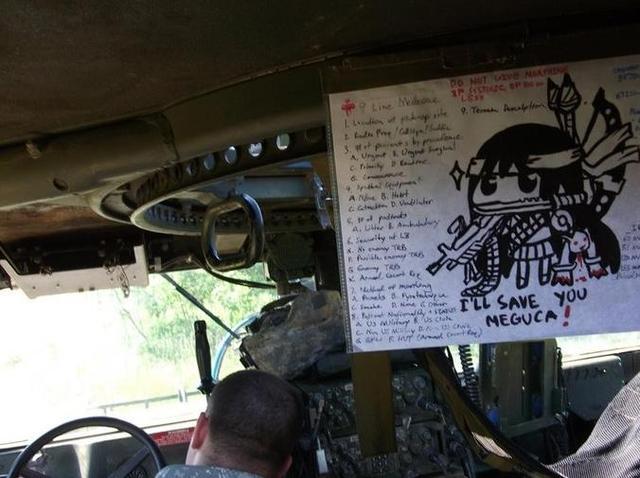 DO NOT GIVE MORPHINE
IF SYSTOLIC BP 90 OR
LESS
9 Line Medevac
1. Location of pickup site
2. Radio Freq / Callsign / Suffix
3. # of patients by precedence
A. Urgent B. Urgent Surgical
C. Priority D. Routine
E. Convenience
4. Special Equipment
A. None B. Hoist
C. Extraction D. Ventilator
5. # of patients
A. Litter B. Ambulatory
6. Security at
N. No enemy TRPS
P. Possible enemy TRPS
E. Enemy TRPS
X. Armed
7. Method of marking
A. Panels B. Pyrotechnic
C. Smoke D. None E. Other
8. Patient Nationality + Status
A. US Military B. US Civil
C. Non US Military D. Non US Civil
E. EPW
9. Terrain Description
I'LL SAVE YOU
MEGUCA!